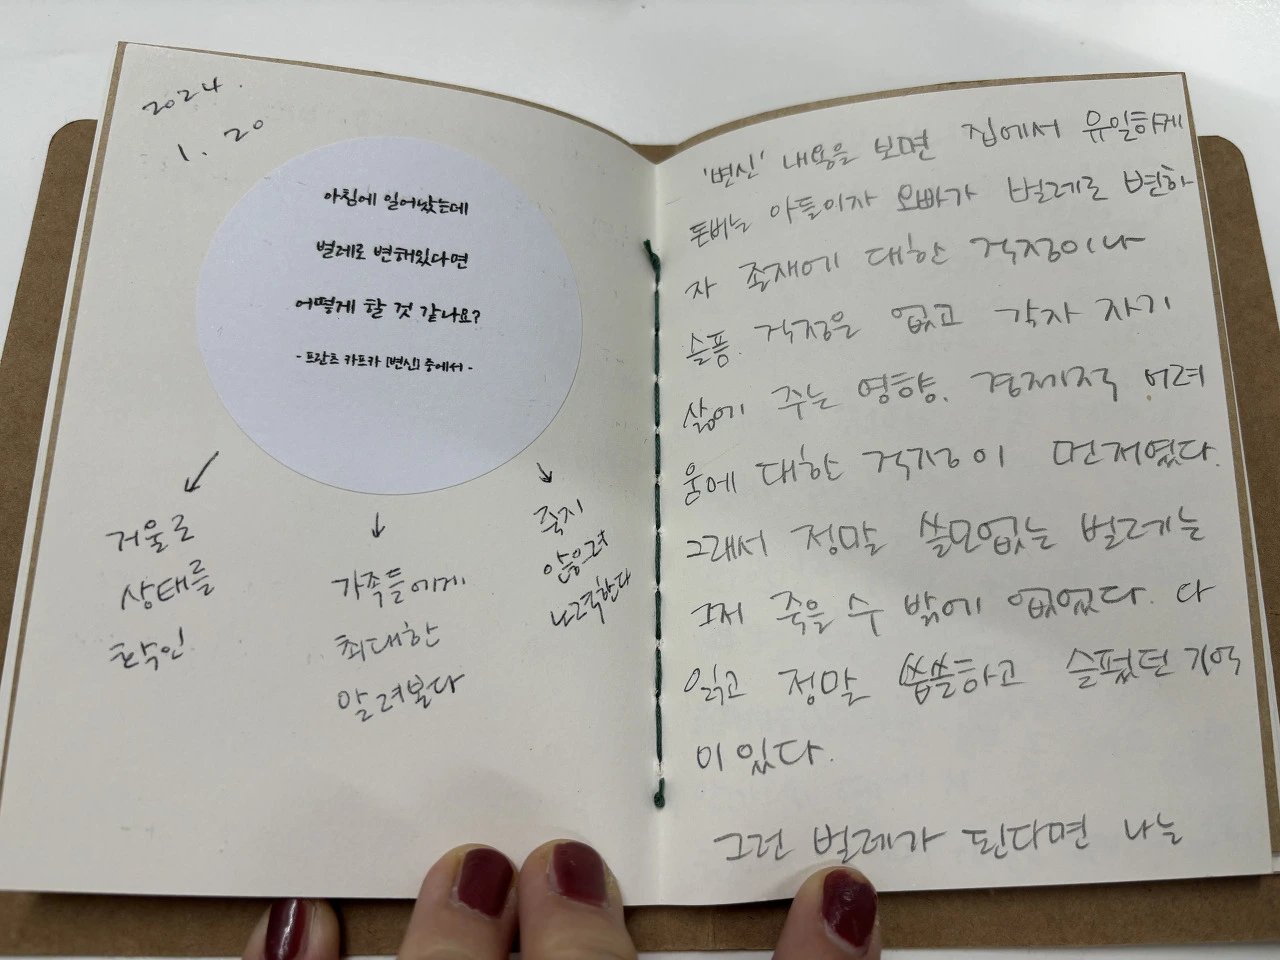 2024.
1. 20
아침에 일어났는데
벌레로 변해있다면
어떻게 할 것 같나요?
- 프란츠 카프카 [변신] 중에서 -
거울로
상태를
확인
가족들에게
최대한
알려본다
죽지
않으려
노력한다
'변신' 내용을 보면 집에서 유일하게
돈버는 아들이자 오빠가 벌레로 변하
자 존재에 대한 걱정이나
슬픔. 걱정은 없고 각자 자기
삶에 주는 영향. 경제적 어려
움에 대한 걱정이 먼저였다.
그래서 정말 쓸모없는 벌레는
그저 죽을 수 밖에 없었다. 다
읽고 정말 씁쓸하고 슬펐던 기억
이 있다.
그런 벌레가 된다면 나는